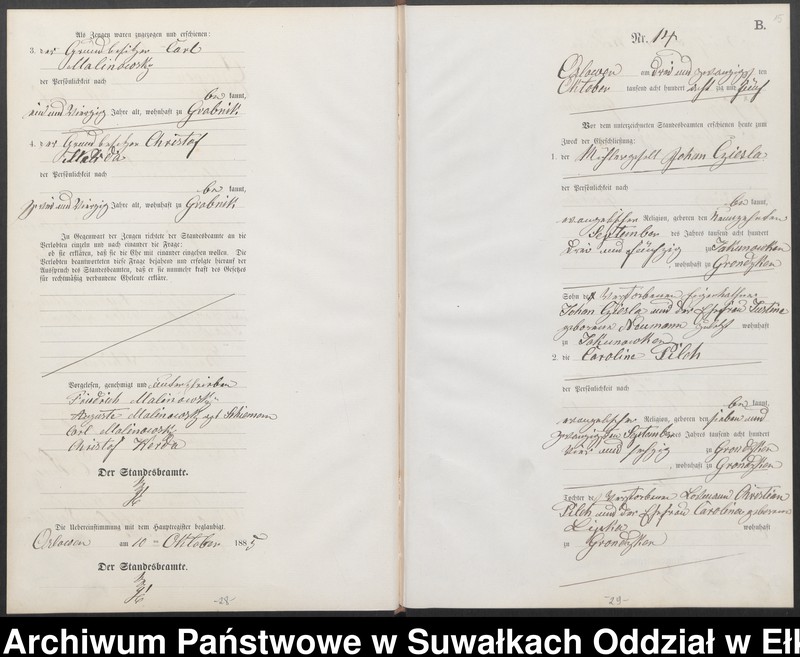 Als Zeugen waren zugezogen und erschienen:
3. der Grundbesitzer Carl
Malinowsky
der Persönlichkeit nach
be kannt,
ein und vierzig Jahre alt, wohnhaft zu Grabnik
4. der Grundbesitzer Christof
der Persönlichkeit nach
be kannt,
zwei und vierzig Jahre alt, wohnhaft zu Grabnik
In Gegenwart der Zeugen richtete der Standesbeamte an die
Verlobten einzeln und nach einander die Frage:
ob sie erklären, daß sie die Ehe mit einander eingehen wollen. Die
Verlobten beantworteten diese Frage bejahend und erfolgte hierauf der
Ausspruch des Standesbeamten, daß er sie nunmehr kraft des Gesetzes
für rechtmäßig verbundene Eheleute erkläre.
Vorgelesen, genehmigt und unterschrieben
Friedrich Malinowsky
Auguste Malinowsky geb
Carl Malinowsky
Christof Kerda
Der Standesbeamte.
Die Uebereinstimmung mit dem Hauptregister beglaubigt.
Orlowen am 10 ten Oktober 1885
Der Standesbeamte.
-28-
15
B.
Nr. 14
Orlowen am drei und zwanzigsten
Oktober tausend acht hundert acht zig und fünf
Vor dem unterzeichneten Standesbeamten erschienen heute zum
Zweck der Eheschließung:
1. der Johan Cziesla
der Persönlichkeit nach
be kannt,
evangelischer Religion, geboren den neunzehnten
September des Jahres tausend acht hundert
drei und fünfzig zu Jakunowken
, wohnhaft zu Grondzken
Sohn des verstorbenen
Johan Cziesla und der Ehefrau Justine
geborene Neumann zuletzt wohnhaft
zu Jakunowken
2. die Caroline Pilch
der Persönlichkeit nach
be kannt,
evangelischer Religion, geboren den sieben und
zwanzigsten September des Jahres tausend acht hundert
vier und sechzig zu Grondzken
, wohnhaft zu Grondzken
Tochter des verstorbenen Losmann Christian
Pilch und der Ehefrau Carolina geborene
wohnhaft
zu Grondzken
-29-
Archiwum Państwowe w Suwałkach Oddział w Ełk